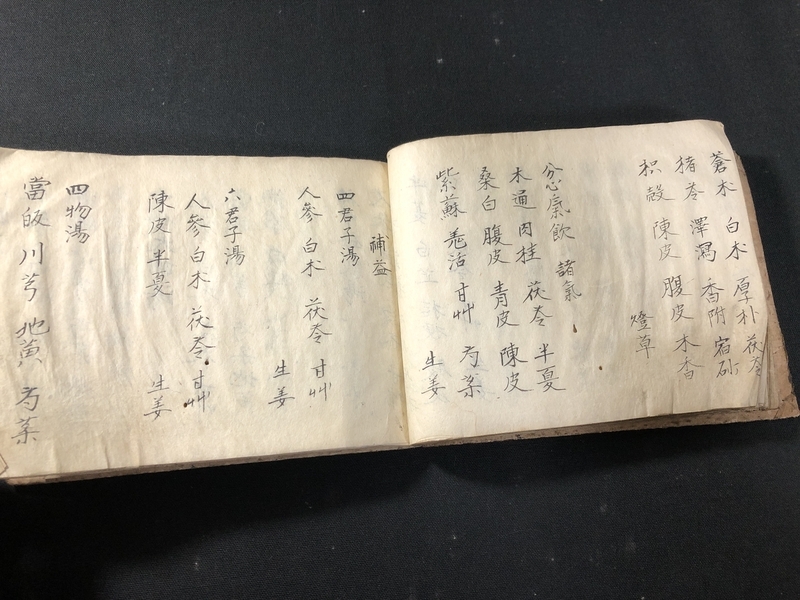 蒼朮 白朮 厚朴 茯苓
猪苓 澤瀉 香附 宿砂
枳殻 陳皮 腹皮 木香
燈草
分心氣飲 諸氣
木通 肉桂 茯苓 半夏
桑白 腹皮 青皮 陳皮
紫蘇 羌活 甘艸 芍薬
生姜
補益
四君子湯
人參 白朮 茯苓 甘艸
生姜
六君子湯
人參 白朮 茯苓 甘艸
陳皮 半夏 生姜
四物湯
當皈 川芎 地黄 芍薬